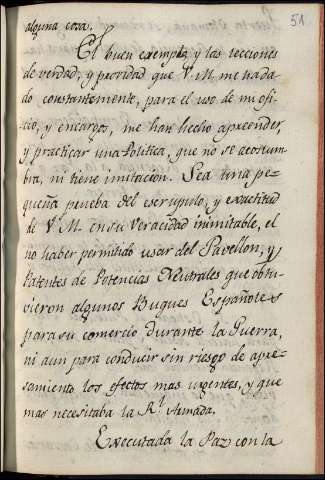 51
alguna cosa.
El buen exemplo, y las lecciones
de verdad, y probidad que V.M. me ha da-
do constantemente, para el uso de mi ofi-
cio, y encargos, me han hecho aprender,
y practicar una Política, que no se acostum-
bra, ni tiene imitacion. Sea una pe-
queña prueba del escrupulo, y exactitud
de V.M. en su veracidad inimitable, el
no haber permitido usar del Pavellon, y
Patentes de Potencias Neutrales que obtu-
vieron algunos Buques Españoles
para su comercio durante la Guerra,
ni aun para conducir sin riesgo de apre-
samiento los efectos mas urgentes, y que
mas necesitaba la Rl. Armada.
Executada la Paz con la